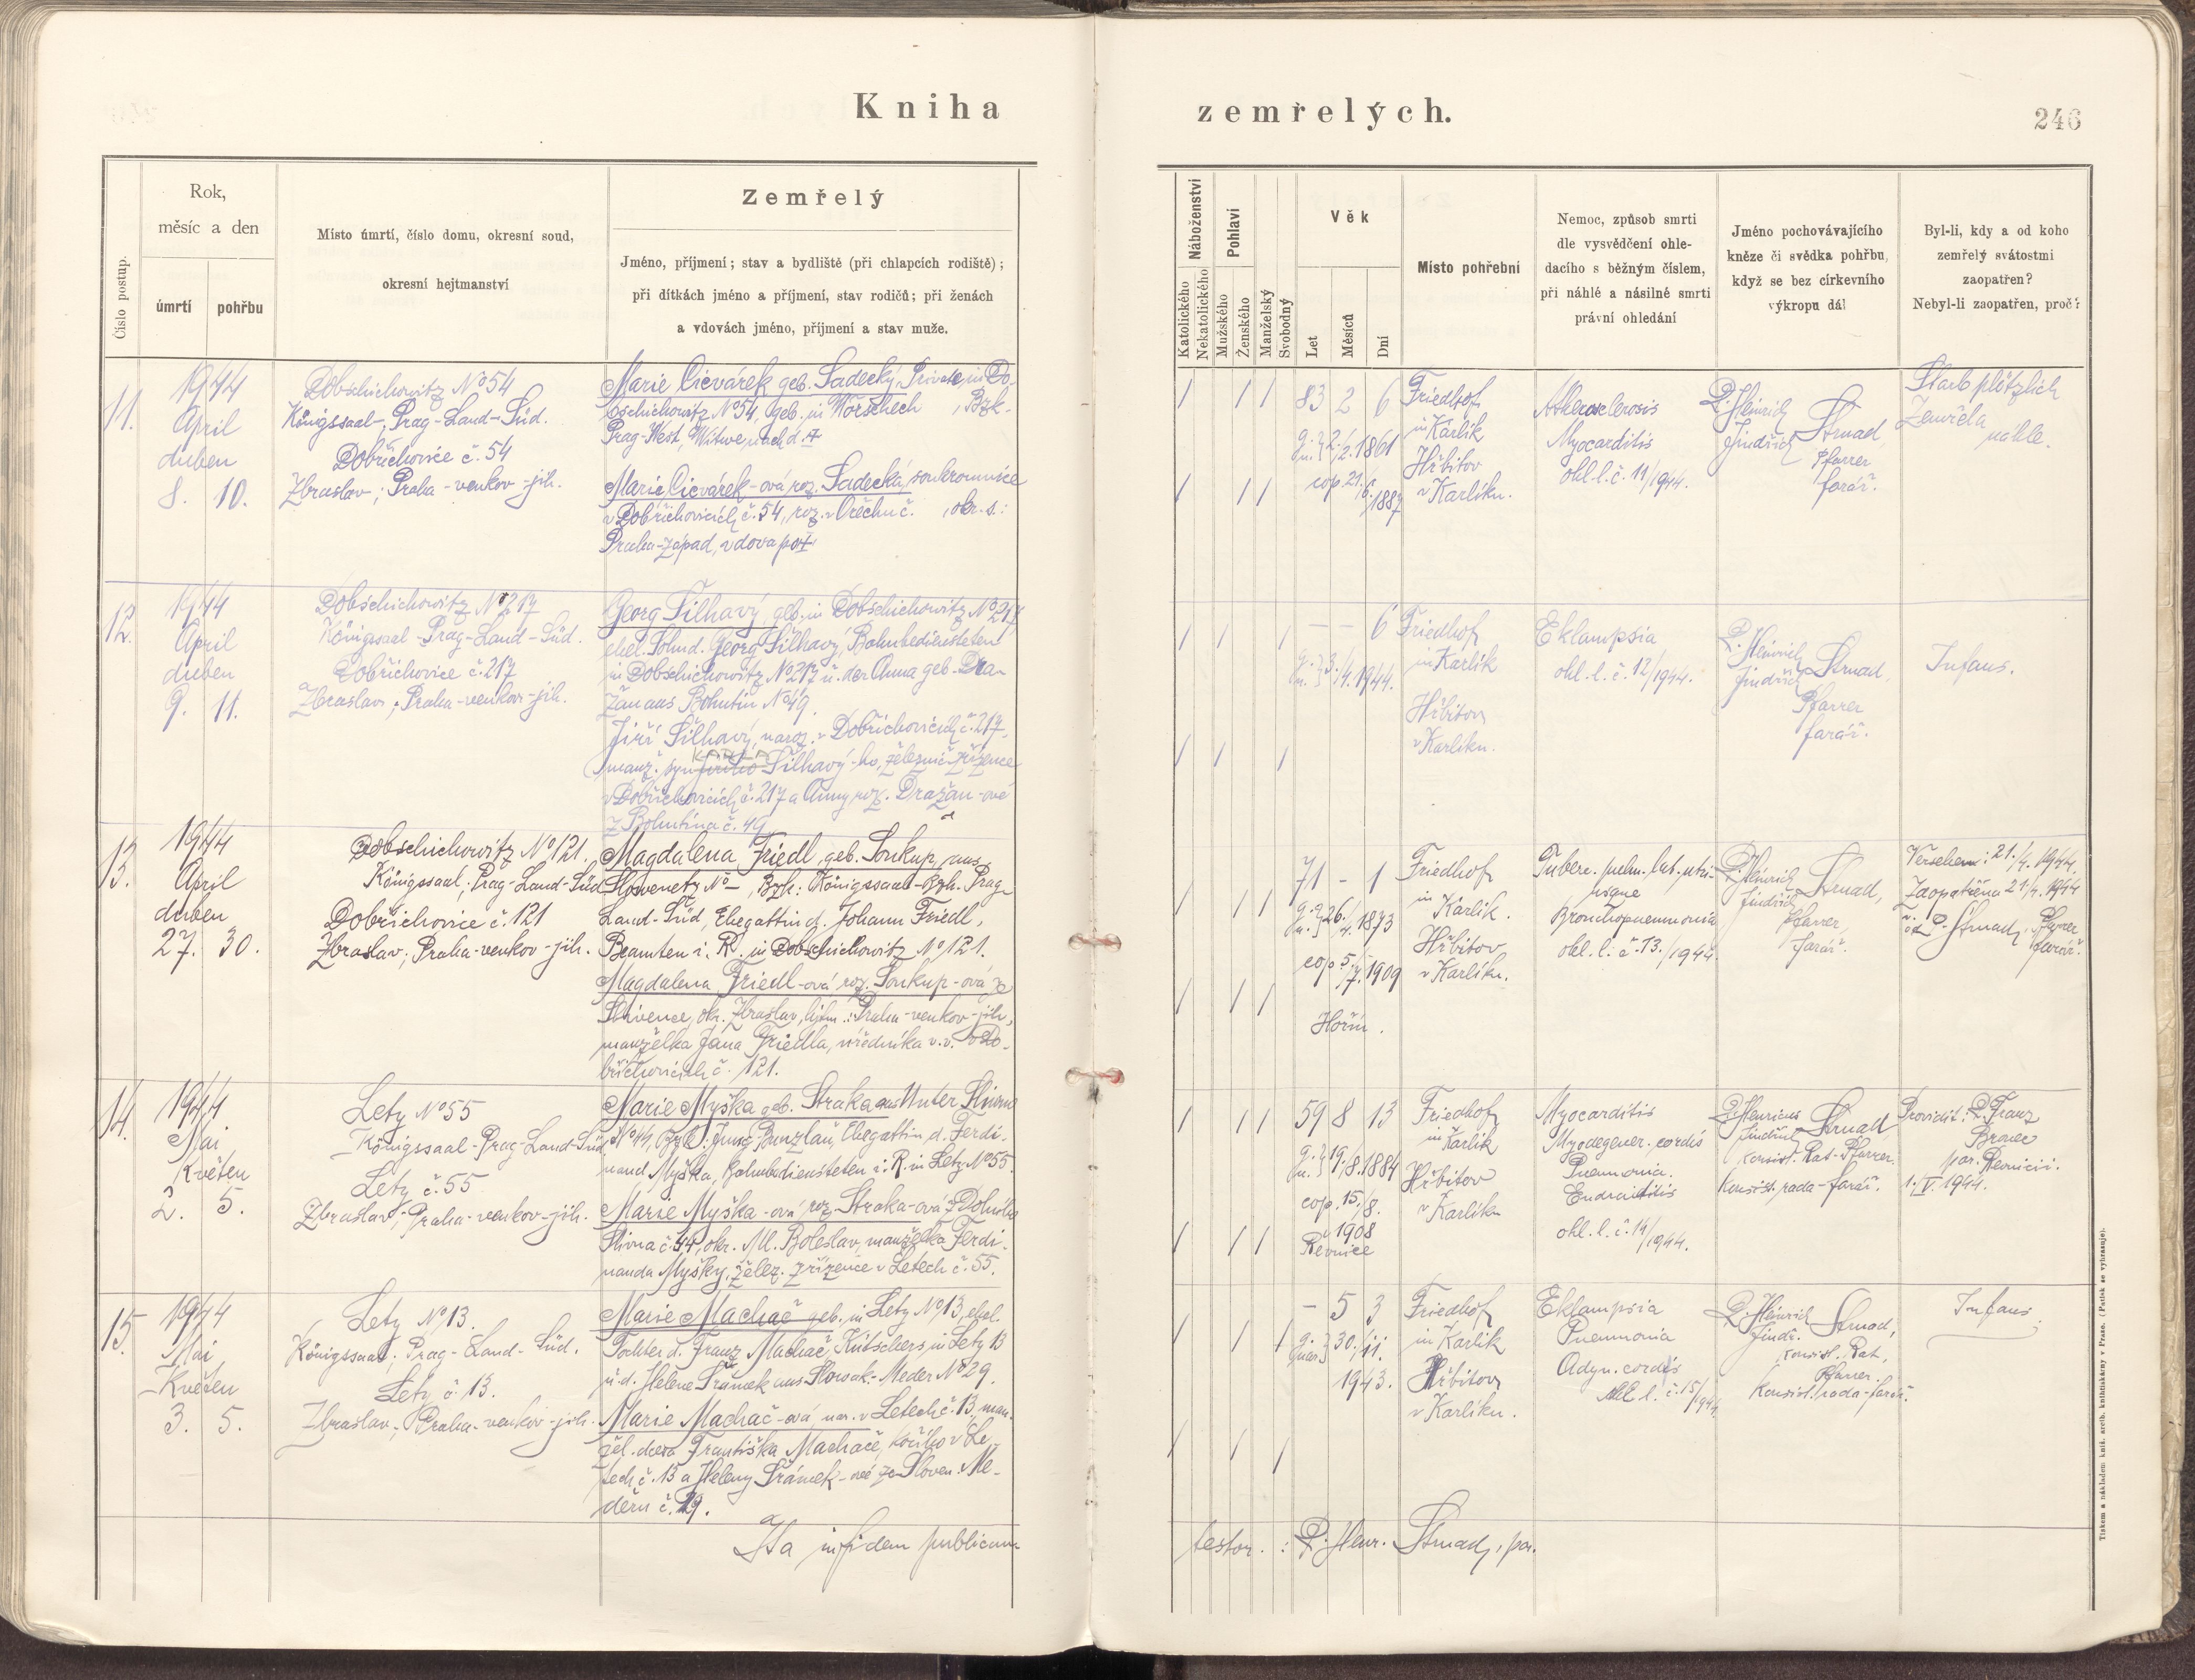 Kniha zemřelých.
246
Číslo postup.
Rok,
měsíc a den
úmrtí
pohřbu
Místo úmrtí, číslo domu, okresní soud,
okresní hejtmanství
Zemřelý
Jméno, příjmení; stav a bydliště (při chlapcích rodiště);
při dítkách jméno a příjmení, stav rodičů; při ženách
a vdovách jméno, příjmení a stav muže.
Náboženství
Katolického
Nekatolického
Pohlaví
Mužského
Ženského
Manželský
Svobodný
Věk
Let
Měsíců
Dní
Místo pohřební
Nemoc, způsob smrti
dle vysvědčení ohle-
dacího s běžným číslem,
při náhlé a násilné smrti
právní ohledání
Jméno pochovávajícího
kněze či svědka pohřbu,
když se bez církevního
výkropu dál
Byl-li, kdy a od koho
zemřelý svátostmi
zaopatřen?
Nebyl-li zaopatřen, proč?
11.
1944
April
duben
8. 10.
Dobschichowitz No 54
Königssaal-, Prag-Land-Süd.
Dobřichovice č. 54
Zbraslav; Praha-venkov-jih.
Marie Cicvárek geb. Sadecký, Private, in Do-
bschichowitz No 54, geb. in Worschech , Bzk.
Prag-West, Witwe nach d. †
Marie Cicvárek-ová roz. Sadecká, soukromnice
v Dobřichovicích č. 54, roz. v Ořechu č. , okr. s.:
Praha-západ, vdova po †
83 2 6
g. n. } 2./2. 1861
cop. 21./6. 1887
Friedhof
in Karlik
Hřbitov
v Karlíku.
Atherosclerosis
Myocarditis
ohl. l. č. 11/1944.
P. Heinrich
Jindřich Strnad,
Pfarrer
farář.
Starb plötzlich
Zemřela
náhle.
12.
1944
April
duben
9. 11.
Dobschichowitz No 217
Königsaal-Prag-Land-Süd.
Dobřichovice č. 217
Zbraslav; Praha-venkov-jih.
Georg Šilhavý geb. in Dobschichowitz No 217,
ehel. Sohn d. Georg Šilhavý, Bahnbediensteten
in Dobschichowitz No 217 u. der Anna geb. Dra-
žan aus Bohutin No 49.
Jiří Šilhavý, naroz. v Dobřichovicích č. 217,
manž. syn Šilhavý-ho, železnič. zřízence
v Dobřichovicích č. 217 a Anny roz. Dražan-ové
z Bohutína č. 49
– – 6
g. n. } 3./4. 1944.
Friedhof
in Karlik
Hřbitov
v Karlíku.
Eklampsia
ohl. l. č. 12/1944.
P. Heinrich
Jindřich Strnad,
Pfarrer
farář.
Infans.
13.
1944
April
duben
27. 30.
Dobschichowitz No 121.
Königssaal; Prag-Land-Süd
Dobřichovice č. 121
Zbraslav; Praha-venkov-jih.
Magdalena Friedl, geb. Soukup, aus
Sliwenetz No –, Bzk.: Königssaal-Bzh. Prag-
Land-Süd, Ehegattin d. Johann Friedl,
Beamten i. R. in Dobschichowitz No 121.
Magdalena Friedl-ová roz. Soukup-ová ze
Slivence, okr. Zbraslav, hejtm.: Praha-venkov-jih,
manželka Jana Friedla, úředníka v. v. v Do-
břichovicích č. 121.
71 – 1
g. n. } 26./4. 1873
cop 5./7. 1909
Hořín.
Friedhof
in
Karlik.
Hřbitov
v Karlíku.
Tuberc. pulm. lat. utri-
usque
Bronchopneumonia
ohl. l. č. 13./1944.
P. Heinrich
Jindřich Strnad,
Pfarrer,
farář.
Versehen: 21./4. 1944.
Zaopatřena 21/4. 1944
P. Strnad, Pfarrer
farář.
14.
1944
Mai
Květen
2. 5.
Lety No 55
Königssaal-Prag-Land-Süd
Lety č. 55
Zbraslav; Praha-venkov-jih.
Marie Myška geb. Straka aus Unter Sliwno
No 44, Bzk.: Jung-Bunzlau, Ehegattin d. Ferdi-
nand Myška, Bahnbediensteten i. R. in Lety No 55.
Marie Myška-ová roz. Straka-ová z Dolního
Slivna č. 44, okr. Ml. Boleslav, manželka Ferdi-
nanda Myšky, želez. zřízence v Letech č. 55.
59 8 13
g. n. } 19./8. 1884
cop. 15./8.
1908
Řevnice
Friedhof
in
Karlik
Hřbitov
v Karlíku
Myocarditis
Myodegener. cordis
Pneumonia.
ohl. l. č. 14/1944.
P. Henricus
Jindřich Strnad
konsist. Rat-Pfarrer.
konsist. rada-farář.
Providit: P. Franz
par. Řevnicii.
1./V. 1944.
15.
1944
Mai
Květen
3. 5.
Lety No 13.
Königssaal; Prag-Land-Süd.
Lety č. 13.
Zbraslav; Praha-venkov-jih.
Marie Machač geb. in Lety No 13, ehel.
Tochter d. Franz Machač, Kutschers in Lety 13
u. d. Helene Šrámek aus Slowak.-Meder No 29.
Marie Machač-ová, nar. v Letech č. 13, man-
žel. dcera Františka Machače, kočího v Le-
tech č. 13 a Heleny Šrámek-ové ze Sloven. Me-
deru č. 29.
– 5 3
30./11.
1943.
Friedhof
in Karlik
Hřbitov
v Karlíku.
Eklampsia
Pneumonia
Adyn. cordis
ohl. l. č. 15/1944
P. Heinrich
Jindř. Strnad,
konsist. Rat,
Pfarrer.
konsist. rada-farář.
Infans.
Ita in fidem publicam
testor.: P. Henr. Strnad, par.
Tiskem a nákladem kníž. arcib. knihtiskárny v Praze. (Patisk se vyhrazuje).